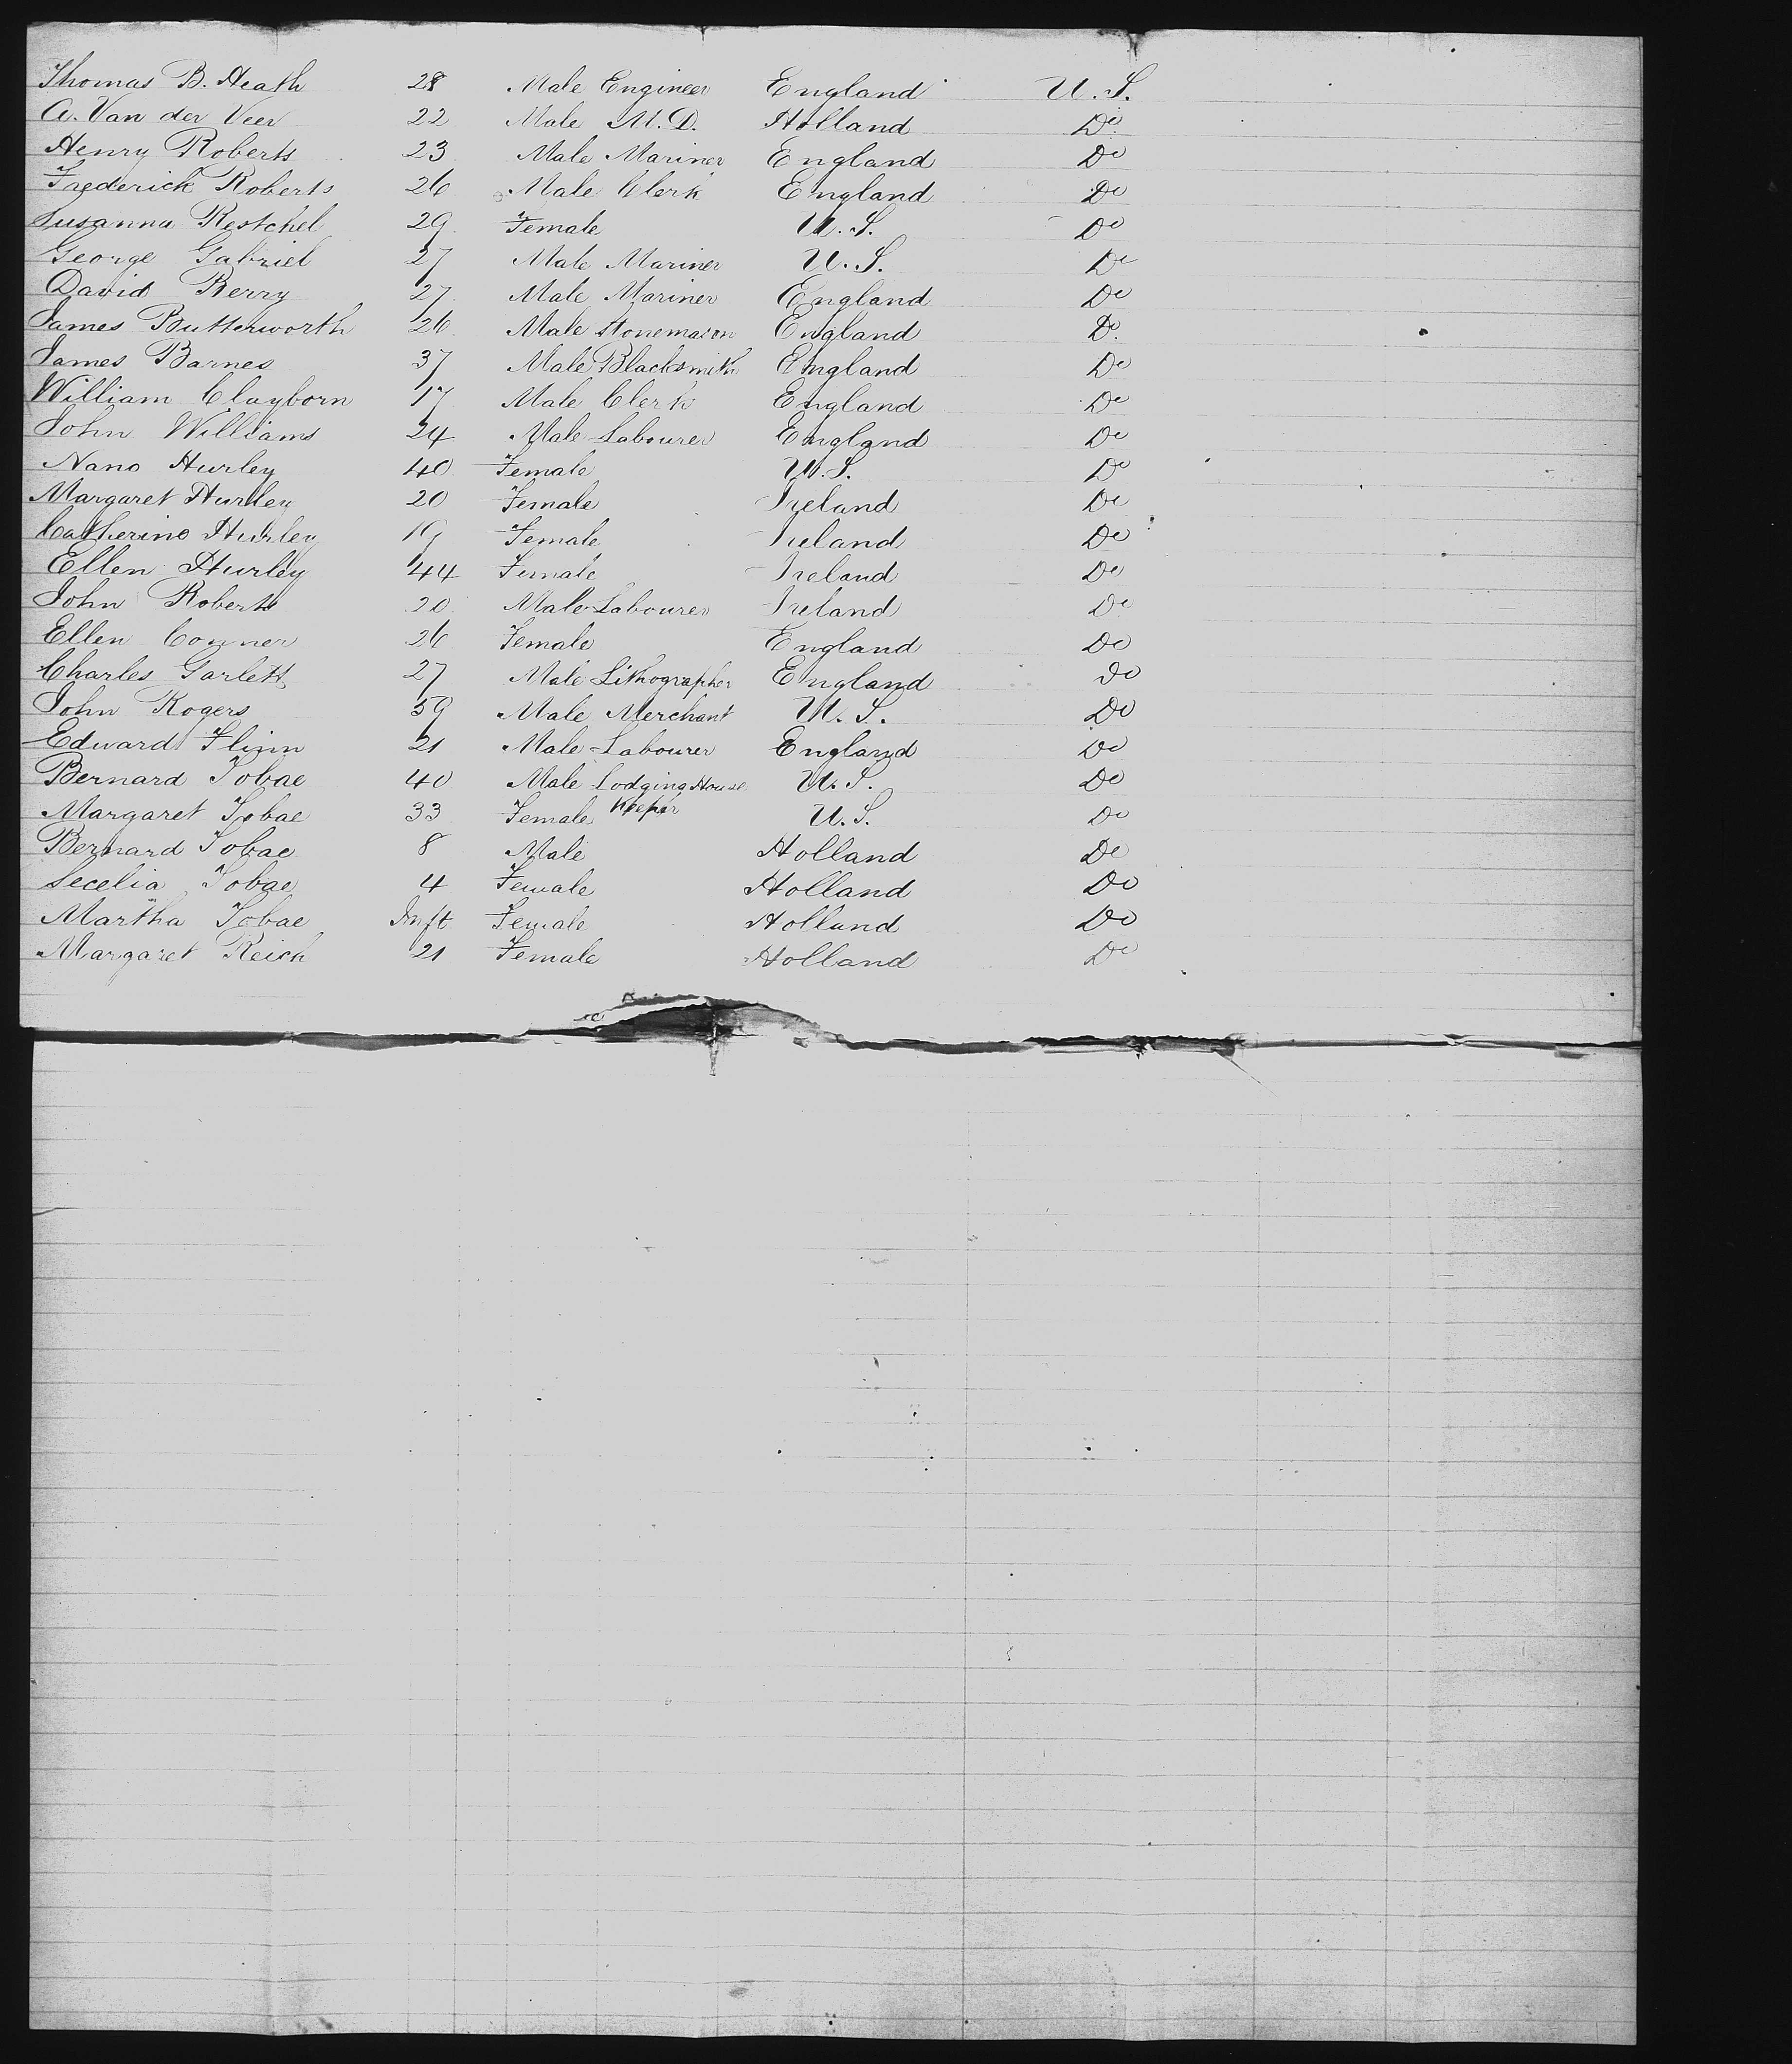 Thomas B. Heath 28 Male Engineer England U. S.
A. Van der Veer 22 Male M. D. Holland Do
Henry Roberts 23 Male Mariner England Do
Frederick Roberts 26 Male Clerk England Do
Susanna Restchel 29 Female U. S. Do
George Gabriel 27 Male Mariner U. S. Do
David Berry 27 Male Mariner England Do
James Butterworth 26 Male Stonemason England Do
James Barnes 37 Male Blacksmith England Do
William Clayborn 17 Male Clerk England Do
John Williams 24 Male Labourer England Do
Nano Hurley 40 Female U. S. Do
Margaret Hurley 20 Female Ireland Do
Catherine Hurley 19 Female Ireland Do
Ellen Hurley 44 Female Ireland Do
John Roberts 20 Male Labourer Ireland Do
Ellen 26 Female England Do
Charles Garlett 27 Male Lithographer England do
John Rogers 59 Male Merchant U. S. Do
Edward Flinn 21 Male Labourer England Do
Bernard Tobae 40 Male Lodging House U. S. Do
Margaret Tobae 33 Female Keeper U. S. Do
Bernard Tobae 8 Male Holland Do
Secelia Tobae 4 Female Holland Do
Martha Tobae Inft Female Holland Do
Margaret Reich 21 Female Holland Do